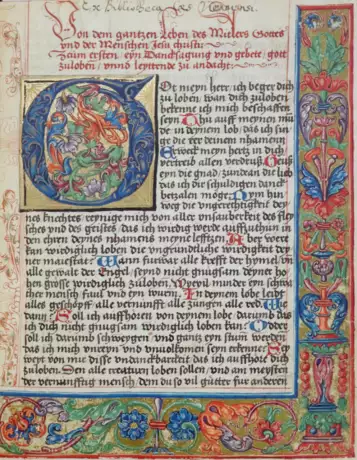 Ex Bibliotheca
Von dem gantzen Leben des Mitlers Gottes
vnd der Menschen Jesu christi
Zum ersten eyn Dancksagung vnd gebete, gott
zuloben, vnnd leyttende zu andacht.
Got meyn herr ich beger dich
zu loben wan dich zuloben
bekenne ich mich beschaffen
seyn Thu auff meynen mu
de in deynem lob, das ich sin
ge die eer deinen nhamenn
Erweck meyn hertz in dich
vertreib allen verdruß
eyn die gnad, zundean die lieb
das ich dir schuldigen danck
betzalen möge Nym hin
weg die ungerechtigkeit dey
nes knechtes, reynige mich von aller vnsauberkeit des fley
sches vnd des geistes, das ich wirdig werde auffzuthun in
den ehren deynes nhamens meyne leffzen Aber wer
kan wirdiglich loben die vngruntliche wirdigkeit dey
ner maiestat Wann furwar alle krefft der hymel, vn
alle gewalt der Engel, seynd nicht gnugsam deyner ho
hen grosse wirdiglich zuloben, Wyevil minder eyn schwa
cher mensch, faul vnd eyn wurm In deynem lobe lecht
alles geschöpff, alle vernunfft alle zungen alle
dang Soll ich auffhören von deynem lobe, darumb das
ich dich nicht gnugsam wirdiglich loben kan Oder
soll ich darumb schweygen vnd gantz eyn stum werden,
das ich mich vnreyn vnd vnuolkomen seyn erkenne Sey
weyt von mir disse vndanckbarkeit das ich auffhöre dich
zuloben, Den alle creaturn loben sollen, vnd am meysten
der vernunfftig mensch, dem du so vil gütter fur anderen